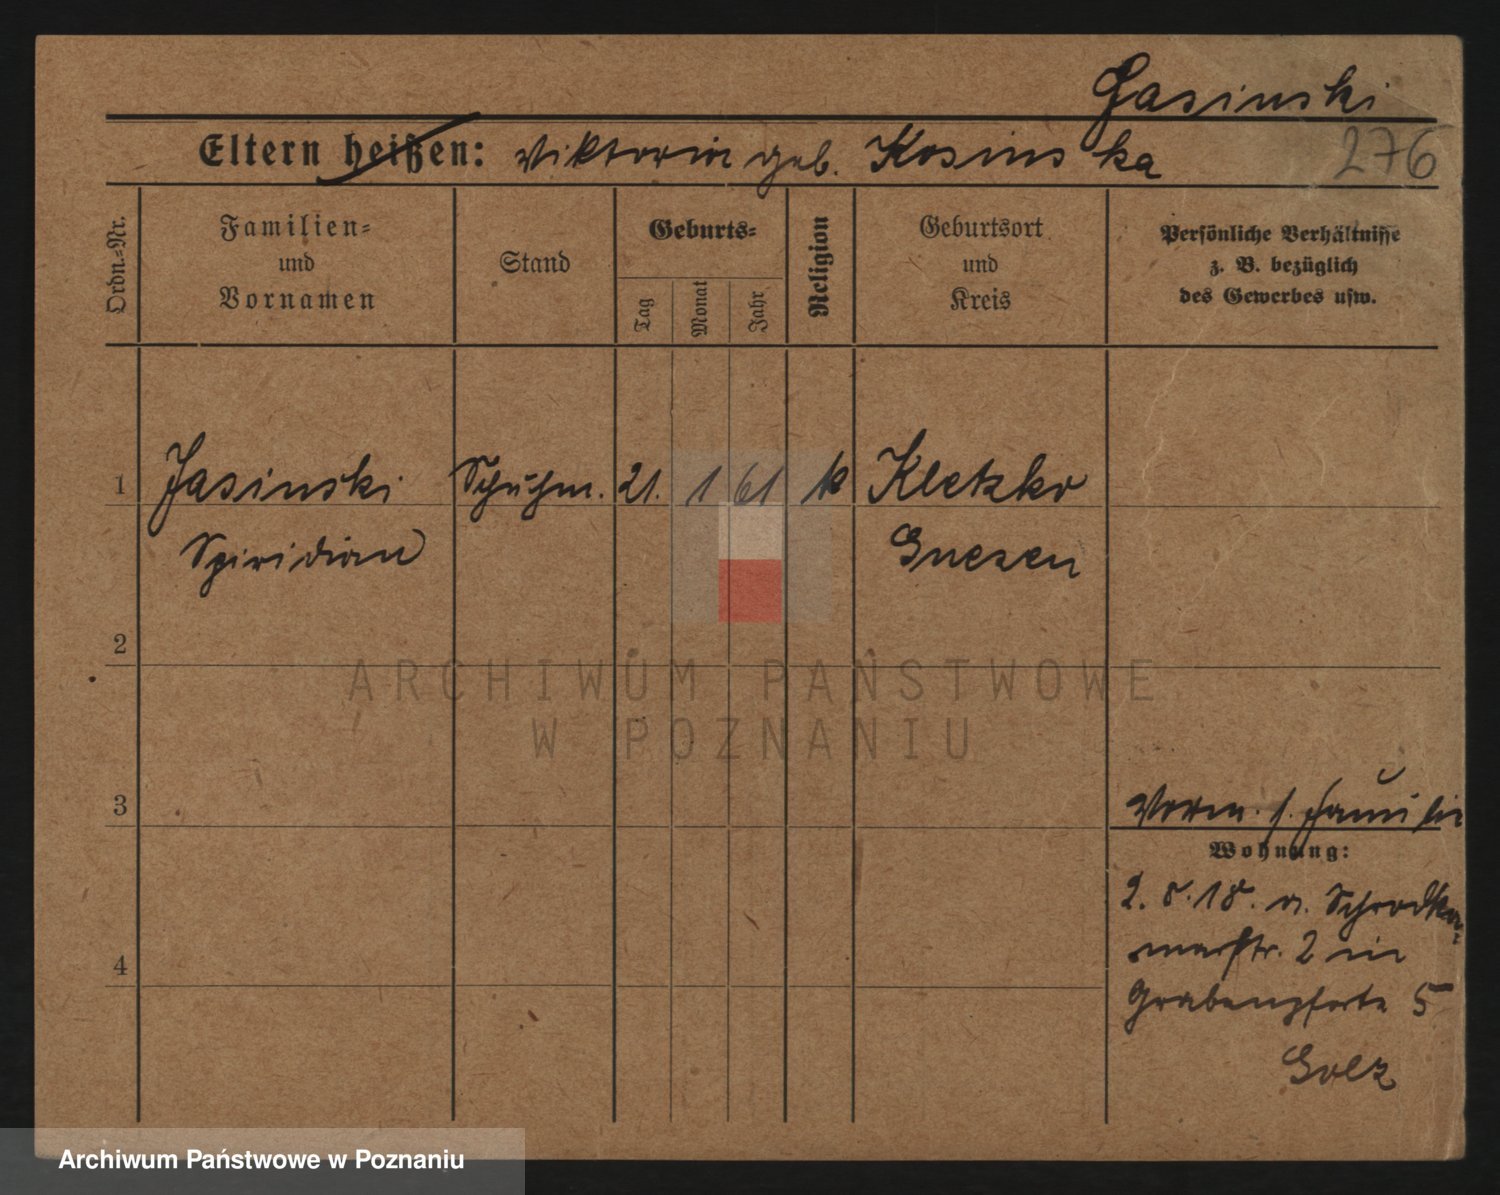 Jasinski
Eltern heißen: Viktoria geb. Kosinska
276
Ordn.-Nr.
Familien-
und
Vornamen
Stand
Geburts-
Tag
Monat
Jahr
Religion
Geburtsort
und
Kreis
Persönliche Verhältnisse
z. B. bezüglich
des Gewerbes usw.
1
Jasinski
Schuhm.
21.
1
61
k
Kletzko
Spiridian
Gnesen
2
3
Verm. s. Familie
Wohnung:
2. 8. 18. a. Schrodka-
marktstr. 2 in
Grabenpforte 5
4
Golz
ARCHIWUM PAŃSTWOWE
W POZNANIU
Archiwum Państwowe w Poznaniu